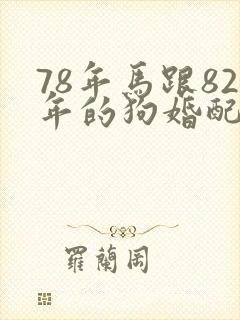 78年馬跟82
年的狗婚配
羅蘭岡